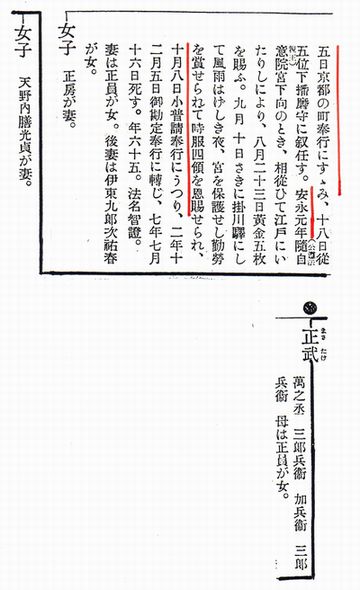 五日京都の町奉行にすゝみ、十八日從
五位下播磨守に叙任す。安永元年隨自
意院宮下向のとき、相從ひて江戸にい
たりしにより、八月二十三日黃金五枚
を賜ふ。九月 十日さきに掛川驛にし
て風雨はけしき夜、宮を保護せし勤勞
を賞せられて時服四領を恩賜せられ、
十月八日小普請奉行にうつり、二年十
二月五日御勘定奉行に轉じ、七年七月
十六日死す。年六十五。法名智證。
妻は正員が女。後妻は伊東九郎次祐春
が女。
女子 正房が妻。
女子 天野内膳光貞が妻。
正武 まさ たけ
萬之丞 三郎兵衞 加兵衞 三郎
兵衞 母は正員が女。